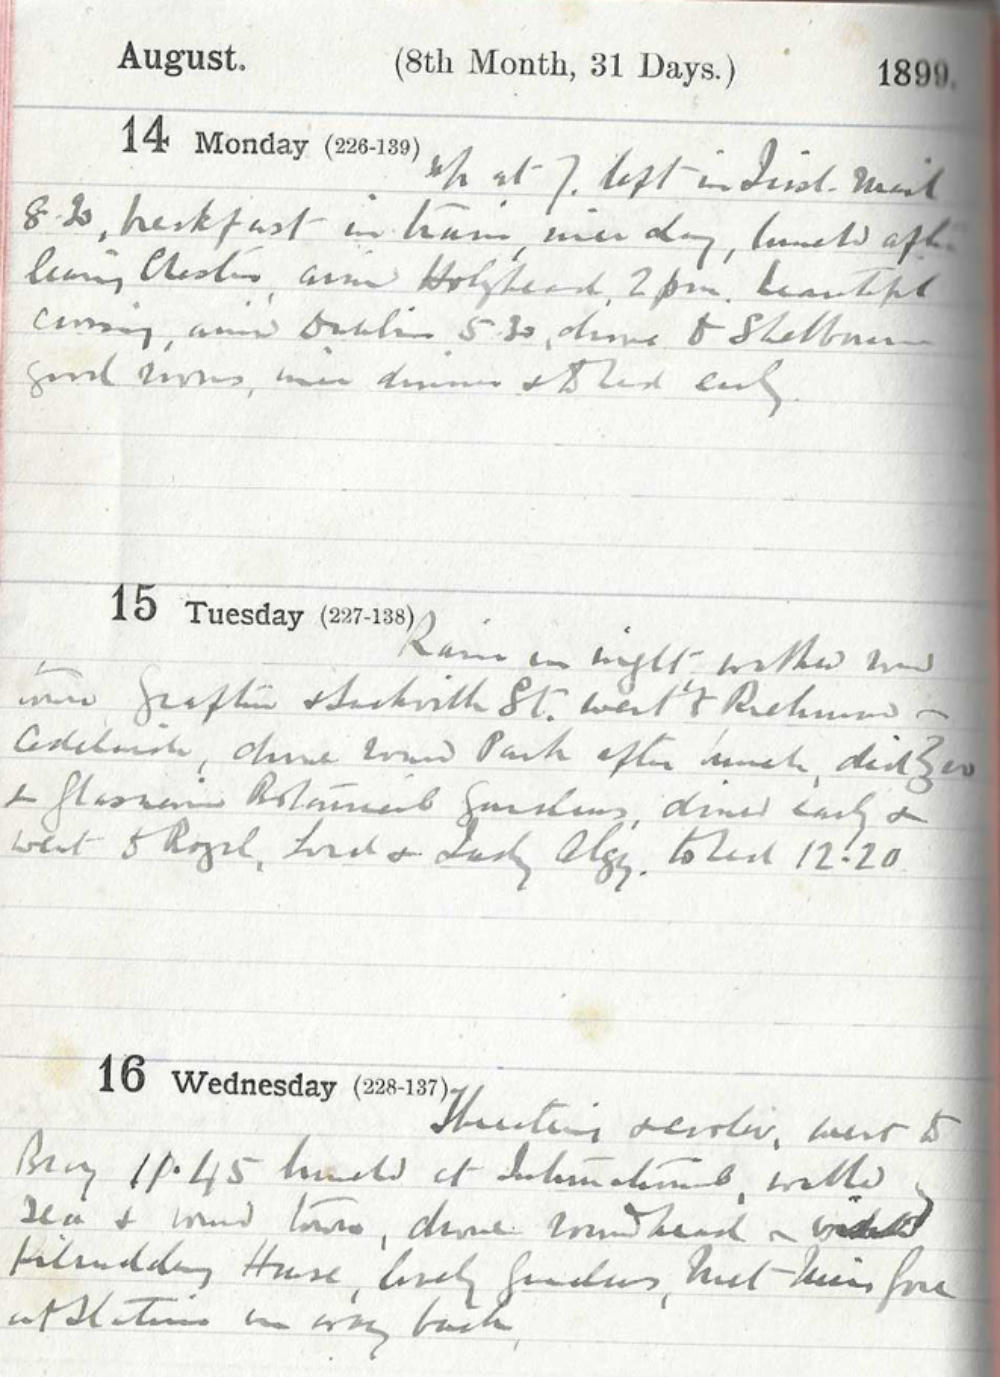 August. (8th Month, 31 Days.) 1899.
14 Monday (226-139)
Up at 7. left in Irish Mail
8.30, breakfast in train, nice day, lunched after
leaving Chester, arrived Holyhead, 2 pm. beautiful
crossing, arrived Dublin 5.30, drove to Shelbourne
good rooms, nice dinner & to bed early.
15 Tuesday (227-138)
Rain in night, walked round
town Grafton & Sackville St. went to Richmond &
Adelaide, drove round Park after lunch, did Zoo
& Glasnevin Botanical Gardens, dined early &
went to Royal, Lord & Lady Algy. to bed 12.20
16 Wednesday (228-137)
& cooler, went to
Bray 11.45 lunched at International, walked by
Sea & round town, drove round head & visited
Kilruddery House, lovely gardens, met Miss
at Station on way back,